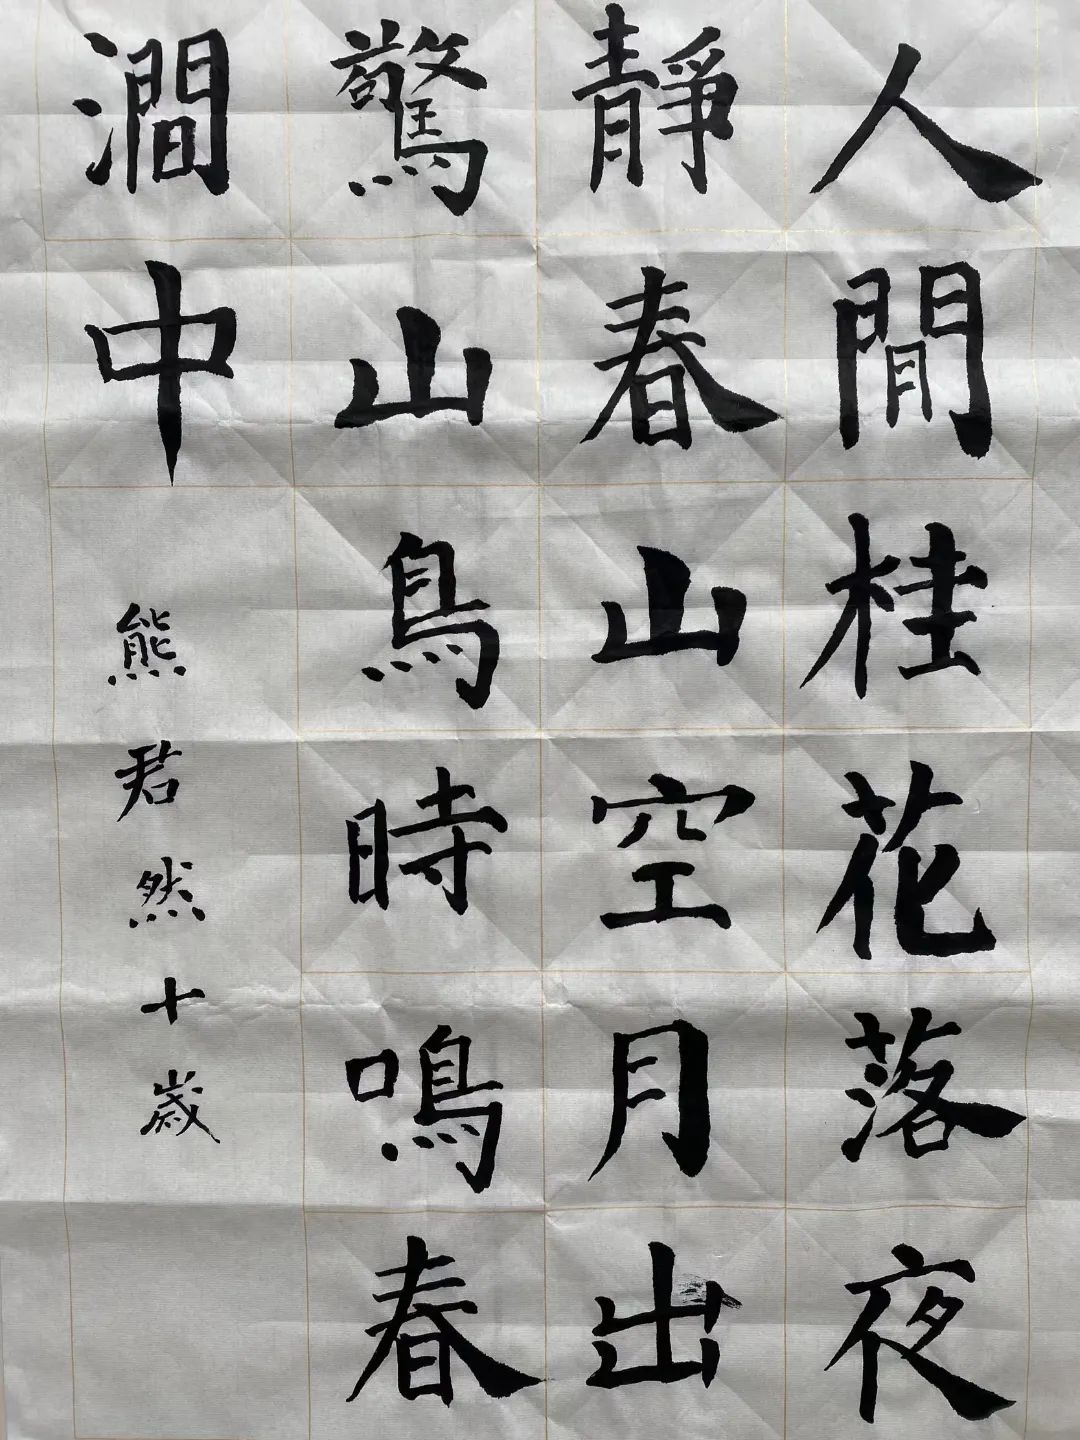 人間桂花落夜
靜春山空月出
驚山鳥時鳴春
澗中
熊君然十歲